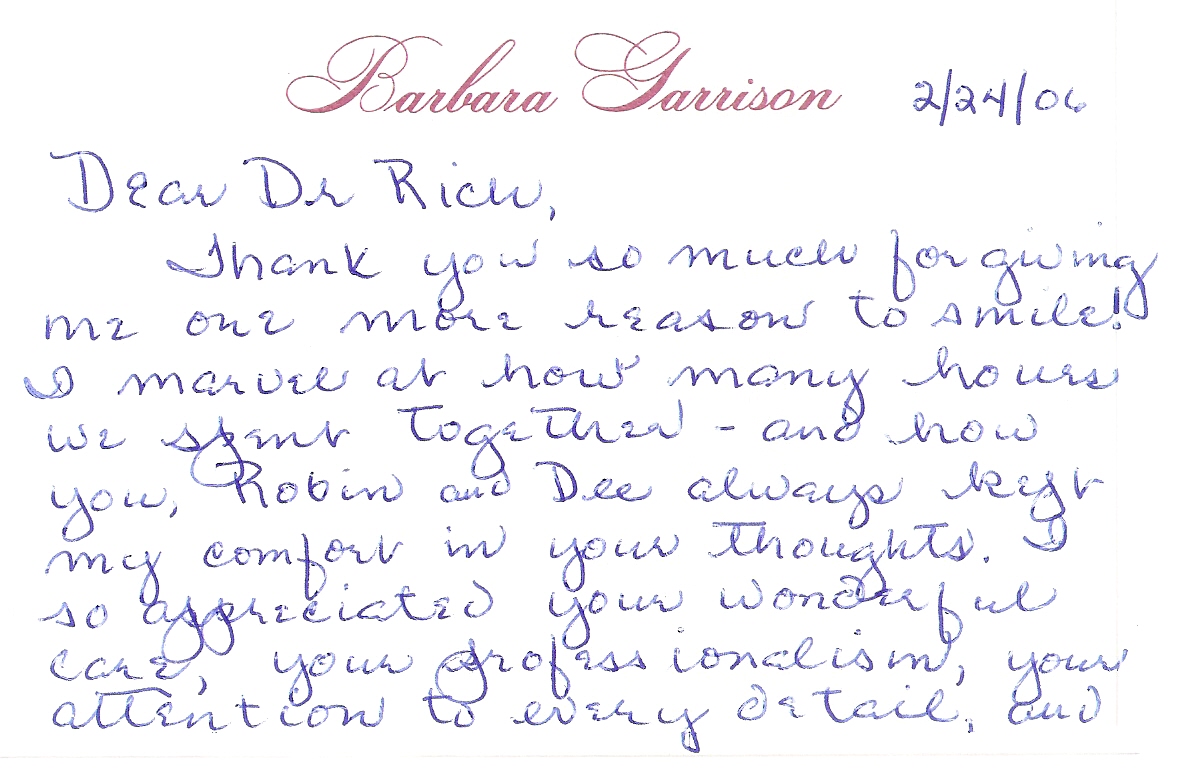 Barbara Garrison 2/24/06
Dear Dr Rich,
Thank you so much for giving
me one more reason to smile!
I marvel at how many hours
we spent together - and how
you, Robin and Dee always kept
my comfort in your thoughts. I
so appreciated your wonderful
care, your professionalism, your
attention to every detail, and